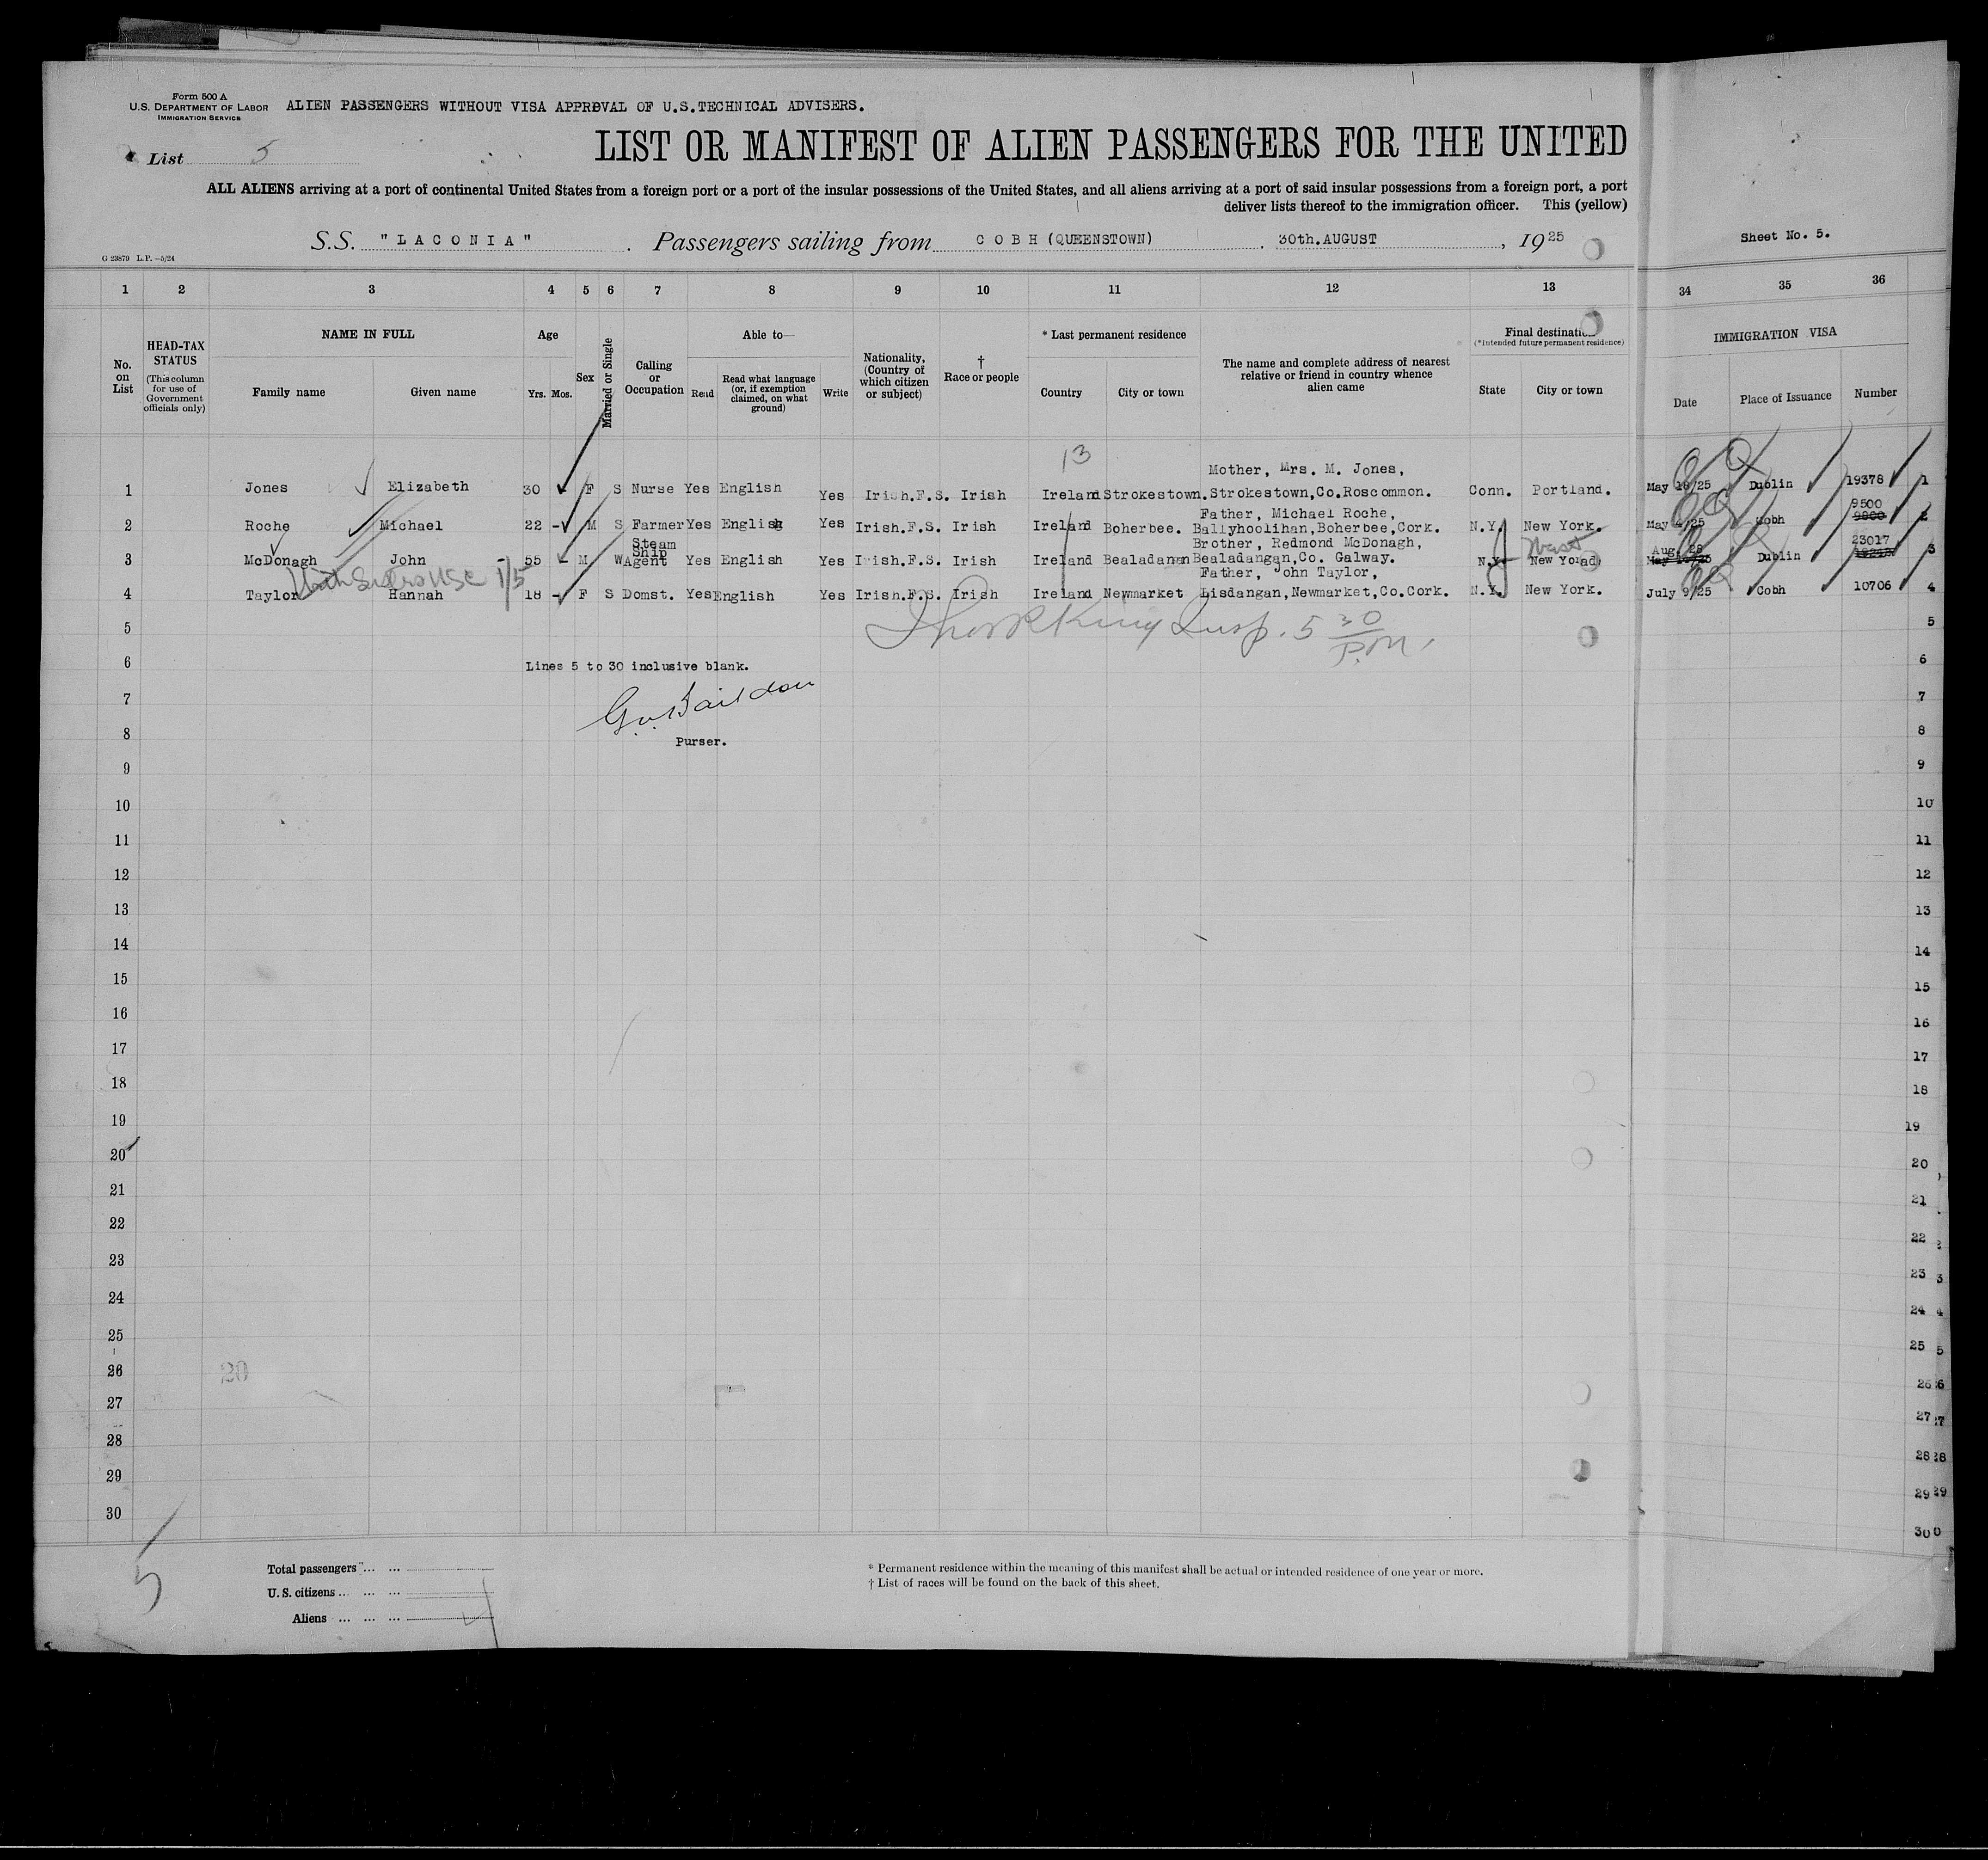 Form 500 A
U.S. DEPARTMENT OF LABOR
IMMIGRATION SERVICE
ALIEN PASSENGERS WITHOUT VISA APPROVAL OF U.S.TECHNICAL ADVISERS.
List 5
LIST OR MANIFEST OF ALIEN PASSENGERS FOR THE UNITED
ALL ALIENS arriving at a port of continental United States from a foreign port or a port of the insular possessions of the United States, and all aliens arriving at a port of said insular possessions from a foreign port, a port
deliver lists thereof to the immigration officer. This (yellow)
S.S. "LACONIA" . Passengers sailing from COBH (QUEENSTOWN) , 30th.AUGUST , 1925
Sheet No. 5.
G 23879 L.P.—5/24
1 2 3 4 5 6 7 8 9 10 11 12 13 34 35 36
No. on List
HEAD-TAX STATUS
(This column for use of Government officials only)
NAME IN FULL
Family name Given name
Age
Yrs. Mos.
Sex
Married or Single
Calling or Occupation
Able to—
Read Read what language (or, if exemption claimed, on what ground) Write
Nationality, (Country of which citizen or subject)
† Race or people
* Last permanent residence
Country City or town
The name and complete address of nearest relative or friend in country whence alien came
Final destination
(*Intended future permanent residence)
State City or town
IMMIGRATION VISA
Date Place of Issuance Number
13
Mother, Mrs. M. Jones,
1 Jones Elizabeth 30 F S Nurse Yes English Yes Irish.F.S. Irish Ireland Strokestown. Strokestown,Co.Roscommon. Conn. Portland. May 18/25 Dublin 19378 1
Father, Michael Roche, 9500
2 Roche Michael 22 - M S Farmer Yes English Yes Irish.F.S. Irish Ireland Boherbee. Ballyhoolihan,Boherbee,Cork. N.Y. New York. May 4/25 Cobh 9800 2
Steam Ship Brother, Redmond McDonagh, Aug. 28 23017
3 McDonagh John 55 M W Agent Yes English Yes Irish.F.S. Irish Ireland Bealadangan Bealadangan,Co. Galway. N.Y. New York Dublin 3
Father, John Taylor,
4 Taylor Hannah 18 - F S Domst. Yes English Yes Irish.F.S. Irish Ireland Newmarket Lisdangan,Newmarket,Co.Cork. N.Y. New York. July 9/25 Cobh 10706 4
5 King Insp. 5 30 P.M. 5
6 Lines 5 to 30 inclusive blank. 6
7 7
8 Purser. 8
9 9
10 10
11 11
12 12
13 13
14 14
15 15
16 16
17 17
18 18
19 19
20 20
21 21
22 22
23 23
24 24
25 25
26 20 26
27 27
28 28
29 29
30 30
5
Total passengers ... ...
U.S. citizens ... ... ...
Aliens ... ... ... 4
* Permanent residence within the meaning of this manifest shall be actual or intended residence of one year or more.
† List of races will be found on the back of this sheet.